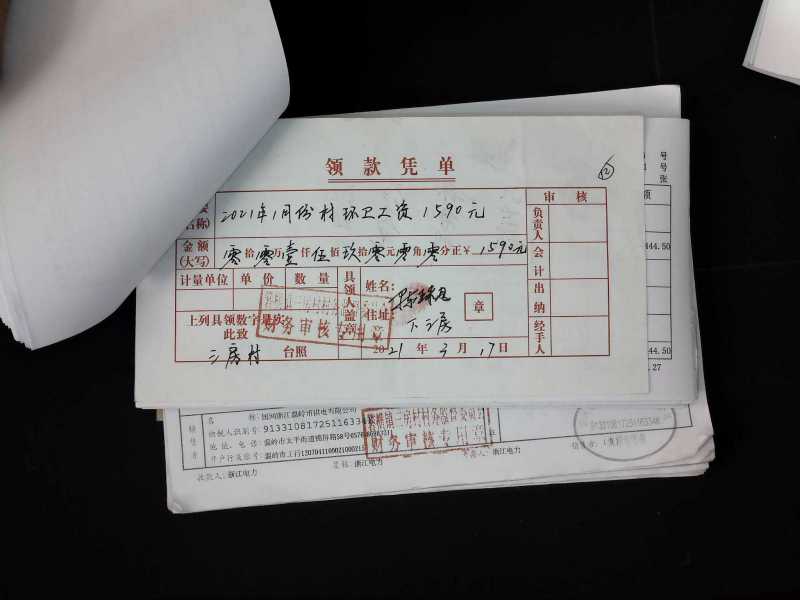 领款凭单
12
审核
名称)
2021年1月份村环卫工资1590元
负责人
金额
(大写)
零拾零万壹仟伍佰玖拾零元零角零分正¥1590元
会计
计量单位 单价 数量
具领人盖章
姓名:
住址:
下三房
章
出纳
上列具领数字是实
此致
财务审核专用章
经手人
三房村 台照
2021年3月17日
号
张
444.50
44.50
.27
名称:国网浙江温岭市供电有限公司
纳税人识别号:91331081725116334
地址、电话:温岭市太平街道
开户行及账号:温岭市工行
三房村村务监督委员会
财务审核专用章
收款人:浙江电力
复核:浙江电力
开票人:浙江电力